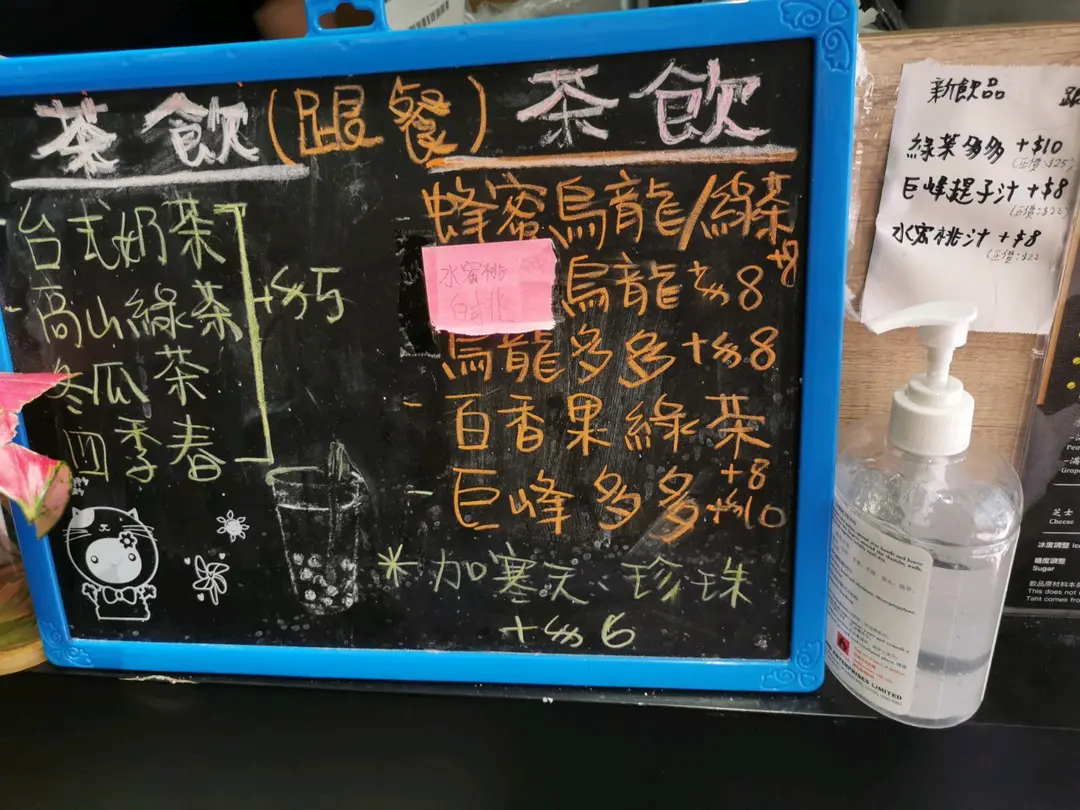 茶飲(跟餐)茶飲
台式奶茶
高山綠茶
冬瓜茶
四季春
+$5
蜂蜜烏龍/綠茶
+8
水蜜桃
烏龍 +$8
烏龍多多 +$8
百香果綠茶
+8
巨峰多多 +$10
*加寒天、珍珠
+$6
新飲品
跟
綠茶多多 +$10
(正價:$25)
巨峰提子汁 +$8
(正價:$22)
水蜜桃汁 +$8
(正價:$22
芝士
Cheese
冰度調整
糖度調整
Sugar
飲品原材料本
This does not
Taht comes from
ENTERPRISES LIMITED